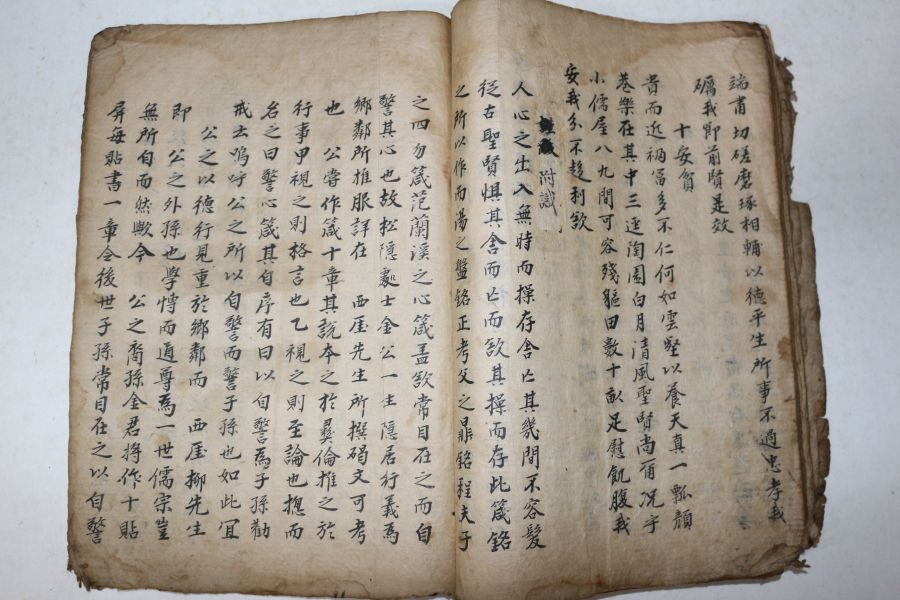 端甫切磋磨琢相輔以德平生所事不過忠孝哉
礪我即前賢是效
十安貧
貴而近禍富多不仁何如雲壑以養天真一瓢顔
巷樂在其中三逕陶園白月清風聖賢尚爾况乎
小儒屋八九間可容殘軀田數十畝足慰飢腹我
安我分不趍利欲
附識
人心之出入無時而操存舍亡其幾間不容髮
從古聖賢惧其舍而亡而欲其操而存此箴銘
之所以作而湯之盤銘正考父之鼎銘程夫子
之四勿箴范蘭溪之心箴盖欲常目在之而自
警其心也故松隱處士金公一生隱居行義爲
鄉鄰所推服詳在 西厓先生所撰碣文可考
也 公嘗作箴十章其說夲之於彛倫推之於
行事甲視之則格言也乙視之則至論也揔而
名之曰警心箴其自序有曰以自警爲子孫勸
戒云嗚呼公之所以自警而警子孫也如此冝
公之以德行見重於鄉鄰而 西厓柳先生
即 公之外孫也學博而道尊爲一世儒宗豈
無所自而然歟今 公之裔孫金君將作十貼
屏每貼書一章令後世子孫常目在之以自警